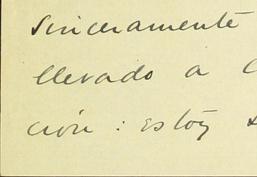 Sinceramente
llevado a
ción: estoy